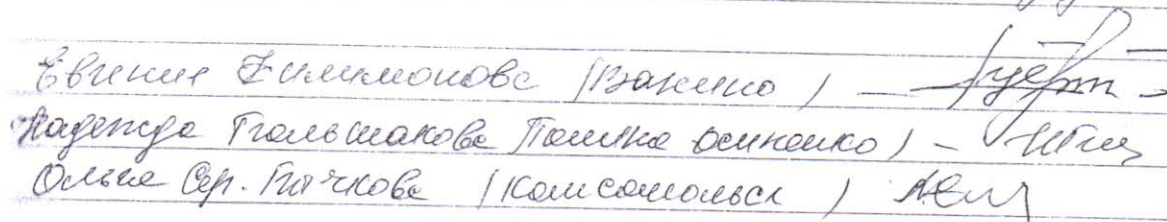 Евгения Филимонова (Ванино) —
Надежда Гальшакова (Полина Осипенко) —
Ольга Сер. Пачкова (Комсомольск)